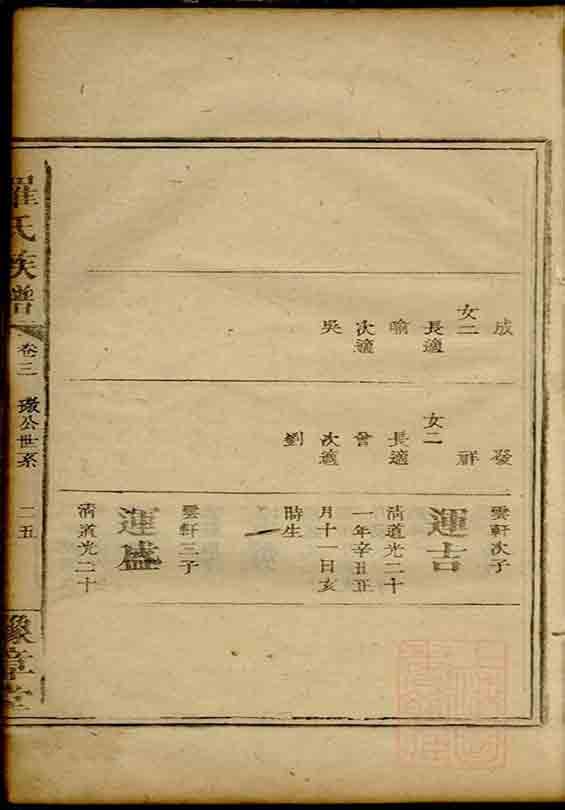 成
女二
長適
喻
次適
吳
發
祥
女二
長適
曾
次適
劉
雲軒次子
運吉
清道光二十
一年辛丑正
月十一日亥
時生
雲軒三子
運盛
清道光二十
羅氏族譜
卷三
璈公世系
二五
豫章堂